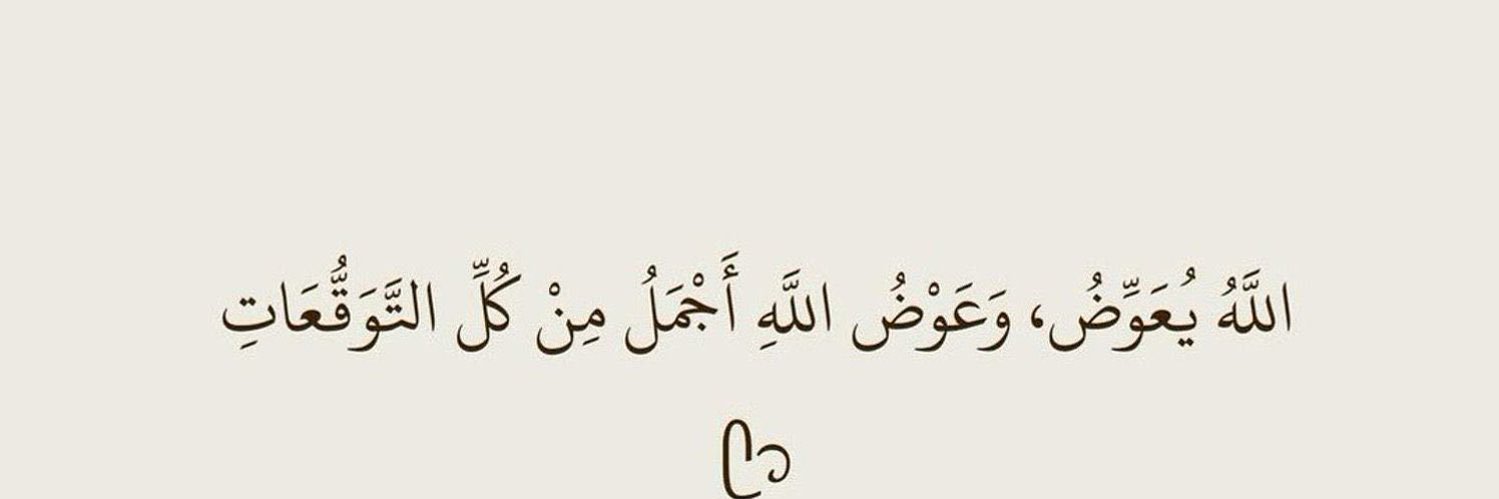 اللَّهُ يُعَوِّضُ، وَعَوْضُ اللَّهِ أَجْمَلُ مِنْ كُلِّ التَّوَقُّعَاتِ